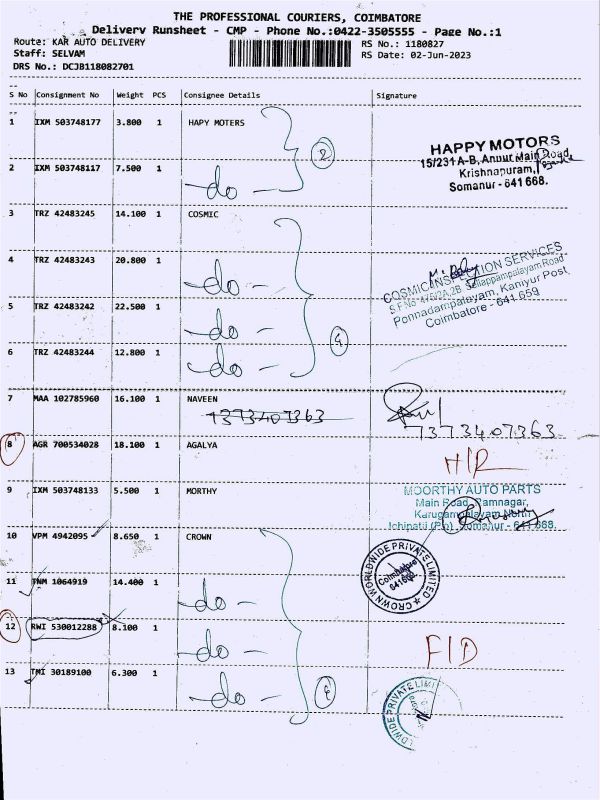 THE PROFESSIONAL COURIERS, COIMBATORE
Delivery Runsheet - CMP - Phone No.:0422-3505555 - Page No.:1
Route: KAR AUTO DELIVERY
RS No.: 1180827
Staff: SELVAM
RS Date: 02-Jun-2023
DRS No.: DCJB118082701
S No Consignment No Weight PCS Consignee Details Signature
1 IXM 503748177 3.800 1 HAPY MOTERS
2 IXM 503748117 7.500 1 -do-
2
HAPPY MOTORS
15/231 A-B, Annur Main Road,
Krishnapuram,
Somanur - 641 668.
3 TRZ 42483245 14.100 1 COSMIC
4 TRZ 42483243 20.800 1 -do-
COSMIC INSPECTION SERVICES
Ponnadampalayam, Kaniyur Post,
Coimbatore - 641 659
5 TRZ 42483242 22.500 1 -do-
4
6 TRZ 42483244 12.800 1 -do-
7 MAA 102785960 16.100 1 NAVEEN
7373407363
7373407363
8 AGR 700534028 18.100 1 AGALYA
H/R
9 IXM 503748133 5.500 1 MORTHY
MOORTHY AUTO PARTS
Main Road, Ramnagar,
Karugampalayam North
Ichipatti (Po), Somanur - 641 668.
10 VPM 4942095 8.650 1 CROWN
CROWN WORLDWIDE PRIVATE LIMITED
Coimbatore
11 TNM 1064919 14.400 1 -do-
12 RWI 530012288 8.100 1 -do-
F/D
13 TMI 30189100 6.300 1 -do-
4
LDWIDE PRIVATE LIMI